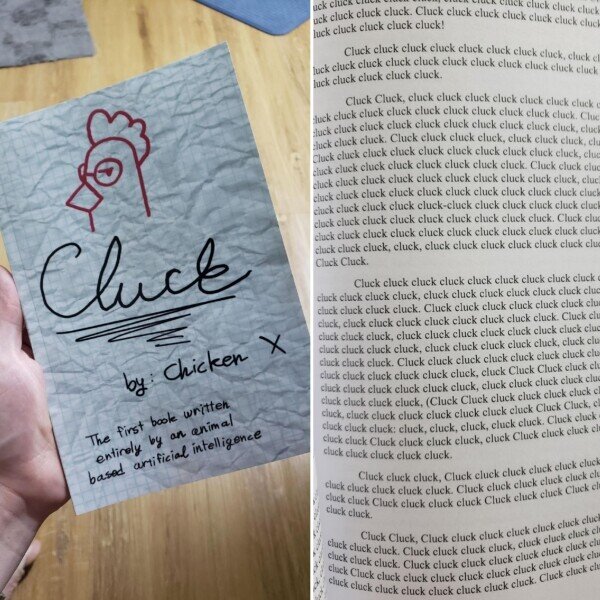 Cluck
by: Chicken X
The first book written
entirely by an animal
based artificial intelligence
cluck cluck cluck. Cluck cluck cluck cluck cluck cluck
cluck cluck cluck cluck!
Cluck cluck cluck cluck cluck cluck cluck cluck, cluck
luck cluck cluck cluck cluck cluck cluck cluck cluck cluck
luck cluck cluck cluck cluck cluck.
Cluck Cluck, cluck cluck cluck cluck cluck cluck cluck
cluck cluck cluck cluck cluck cluck cluck cluck cluck.
cluck cluck cluck cluck cluck cluck cluck cluck cluck,
cluck cluck cluck. Cluck cluck cluck cluck, cluck cluck,
Cluck cluck cluck cluck cluck cluck cluck cluck cluck
cluck cluck cluck cluck cluck cluck cluck. Cluck cluck
cluck cluck cluck cluck cluck cluck cluck cluck cluck,
cluck cluck cluck cluck cluck cluck cluck cluck cluck
cluck cluck cluck cluck-cluck cluck cluck cluck cluck
cluck cluck cluck cluck cluck cluck cluck. Cluck cluck
cluck cluck cluck cluck cluck cluck cluck cluck cluck
cluck cluck, cluck, cluck cluck cluck cluck cluck cluck
Cluck Cluck.
Cluck cluck cluck cluck cluck cluck cluck cluck
cluck cluck cluck, cluck cluck cluck cluck cluck cluck
cluck cluck cluck cluck. Cluck cluck cluck cluck cluck
cluck, cluck cluck cluck cluck cluck cluck. Cluck
cluck cluck cluck cluck cluck cluck cluck cluck
cluck cluck cluck cluck cluck cluck cluck cluck,
cluck cluck. Cluck cluck cluck cluck cluck cluck
cluck cluck cluck cluck cluck, cluck Cluck cluck
cluck cluck cluck, (Cluck Cluck cluck cluck cluck
cluck, cluck cluck cluck cluck cluck cluck Cluck,
cluck cluck cluck: cluck, cluck, cluck cluck. Cluck
cluck Cluck cluck cluck cluck, cluck Cluck cluck
cluck cluck cluck cluck.
Cluck cluck, Cluck cluck cluck cluck cluck
cluck cluck cluck cluck. Cluck cluck cluck cluck
cluck Cluck cluck cluck cluck Cluck cluck cluck
cluck.
Cluck Cluck, Cluck cluck cluck cluck cluck
cluck cluck. Cluck cluck cluck, cluck cluck cluck
cluck cluck cluck cluck cluck cluck cluck cluck
cluck Cluck cluck cluck cluck cluck cluck cluck
cluck cluck cluck cluck cluck cluck. Cluck cluck